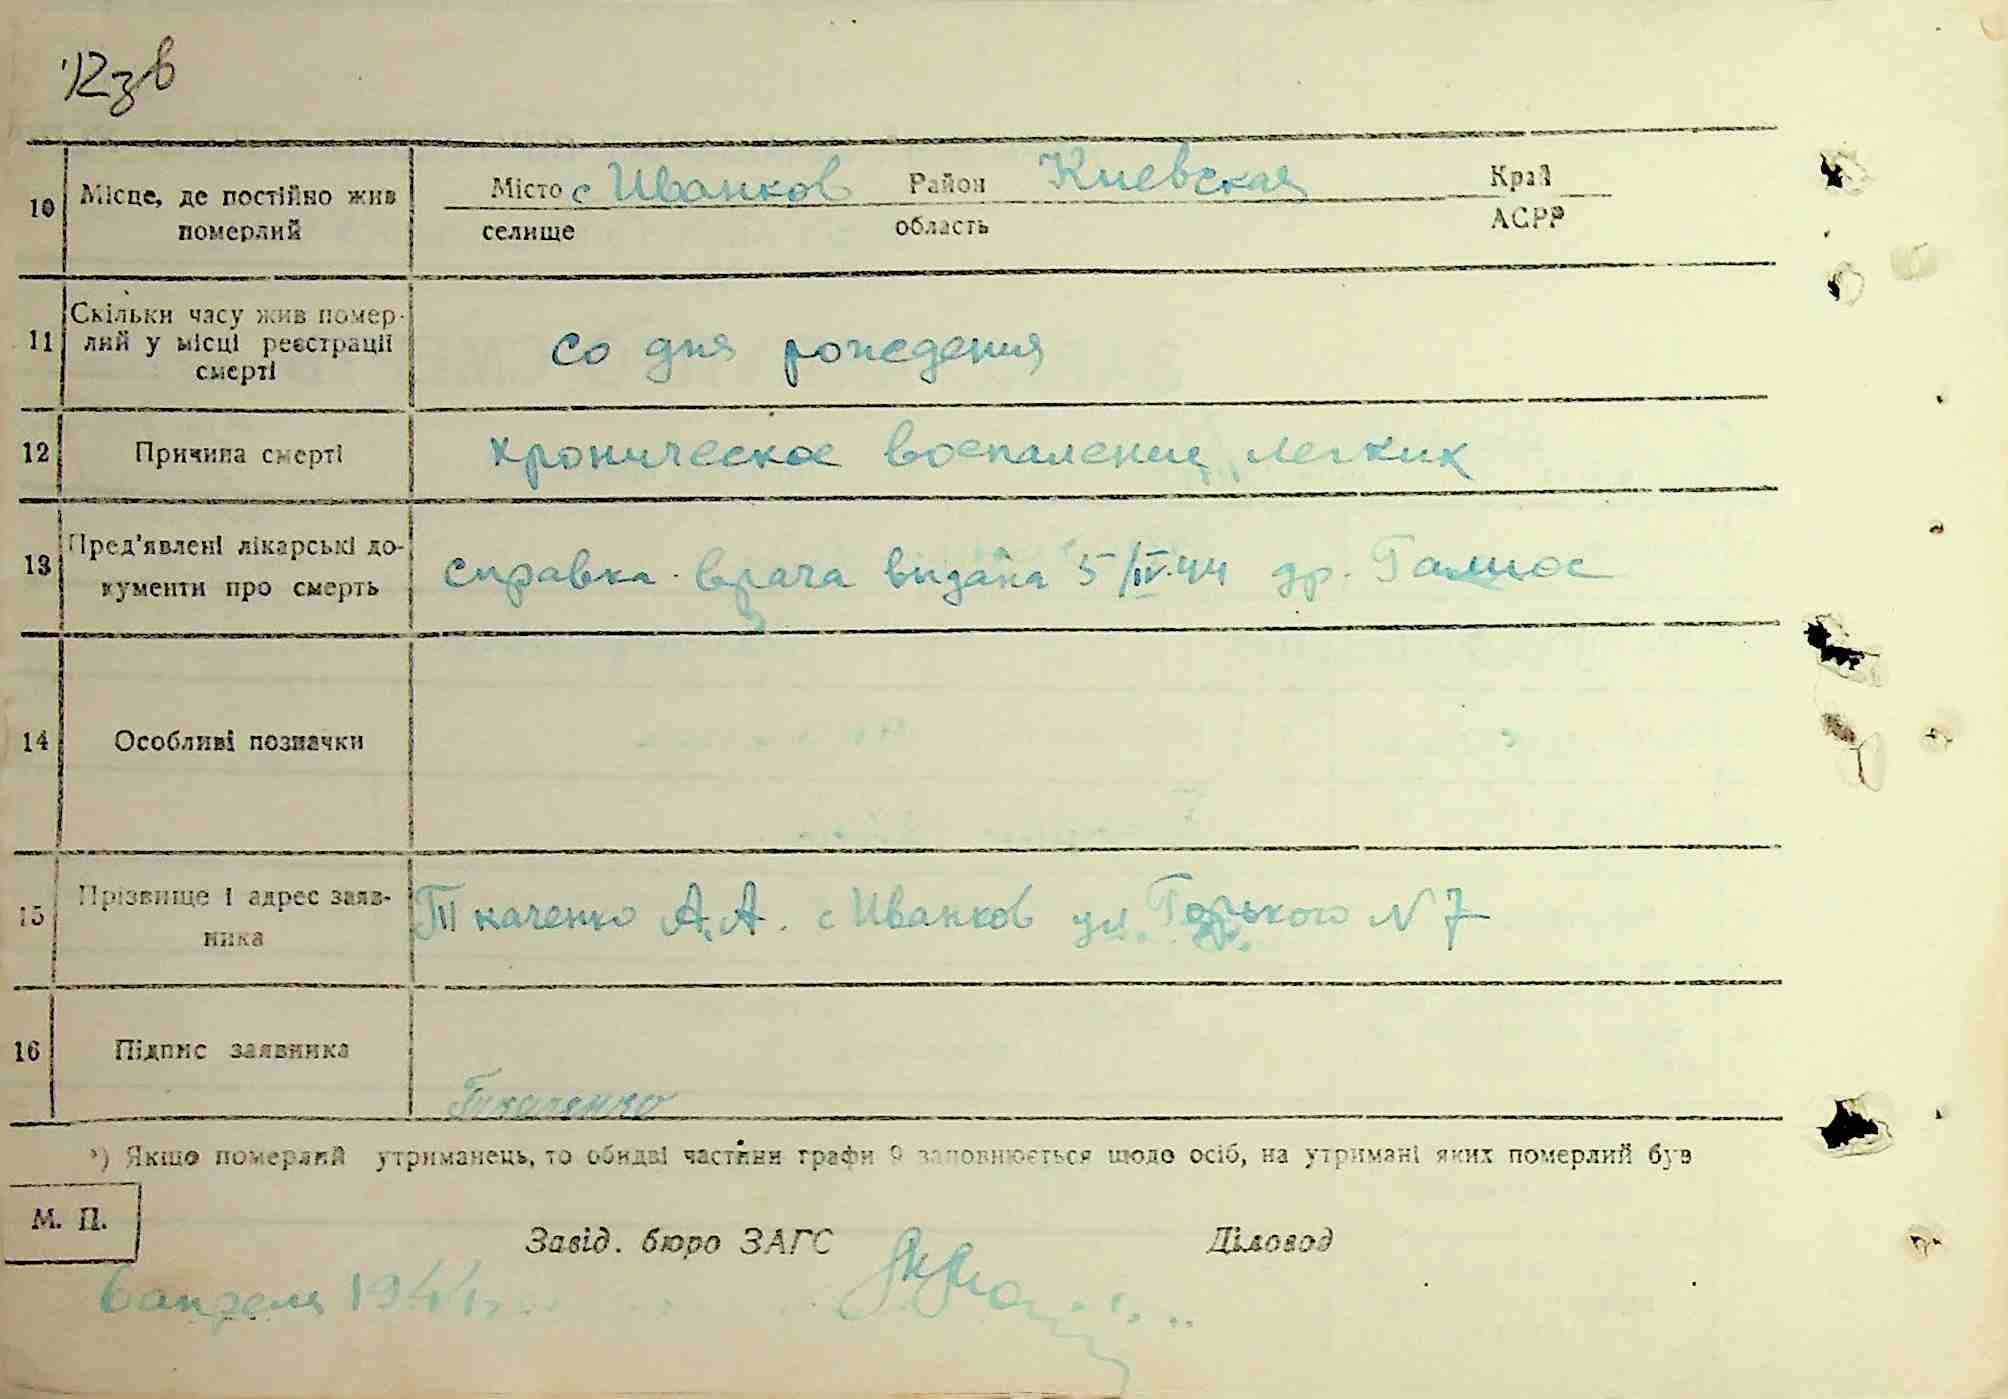 12зв
10 Місце, де постійно жив Місто с Иванков Район Киевская Край
померлий селище область АСРР
Скільки часу жив помер-
11 лий у місці реєстрації со дня рождения
смерті
12 Причина смерті хроническое воспаление легких
13 Пред'явлені лікарські до- справка врача видана 5/IV.44 др.
кументи про смерть
14 Особливі позначки
15 Прізвище і адрес заяв- Ткаченко А.А. с Иванков ул. Горького N 7
ника
16 Підпис заявника Ткаченко
*) Якщо померлий утриманець, то обидві частини графи 9 заповнюється щодо осіб, на утримані яких померлий був
М. П.
Завід. бюро ЗАГС Діловод
6 апреля 1944